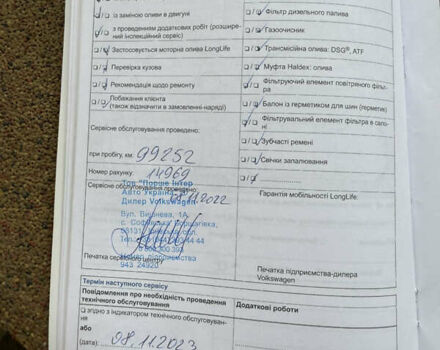 із заміною оливи в двигуні
з проведенням додаткових робіт (розширений інспекційний сервіс)
Застосовується моторна олива LongLife
Перевірка кузова
Рекомендація щодо ремонту
Побажання клієнта
(також відзначити в замовленні-наряді)
Сервісне обслуговування проведено:
при пробігу, км: 99252
Номер рахунку: 14969
Сервісне обслуговування проведено
08.11.2022
Тов "Порше Інтер
Авто Україна"
Дилер Volkswagen
Вул. Вишнева, 1А,
с. Софіївська Борщагівка,
Печатка сервісного центру
943 24920
Фільтр дизельного палива
Газоочисник
Трансмісійна олива: DSG®, ATF
Муфта Haldex: олива
Фільтруючий елемент повітряного фільтра
Балон із герметиком для шин (герметик)
Фільтрувальний елемент фільтра в салоні
Зубчасті ремені
Свічки запалювання
Гарантія мобільності LongLife:
Печатка підприємства-дилера
Volkswagen
Термін наступного сервісу
Повідомлення про необхідність проведення
технічного обслуговування
Додаткові роботи
згідно з індикатором технічного обслуговування
або
(дата): 08.11.2023